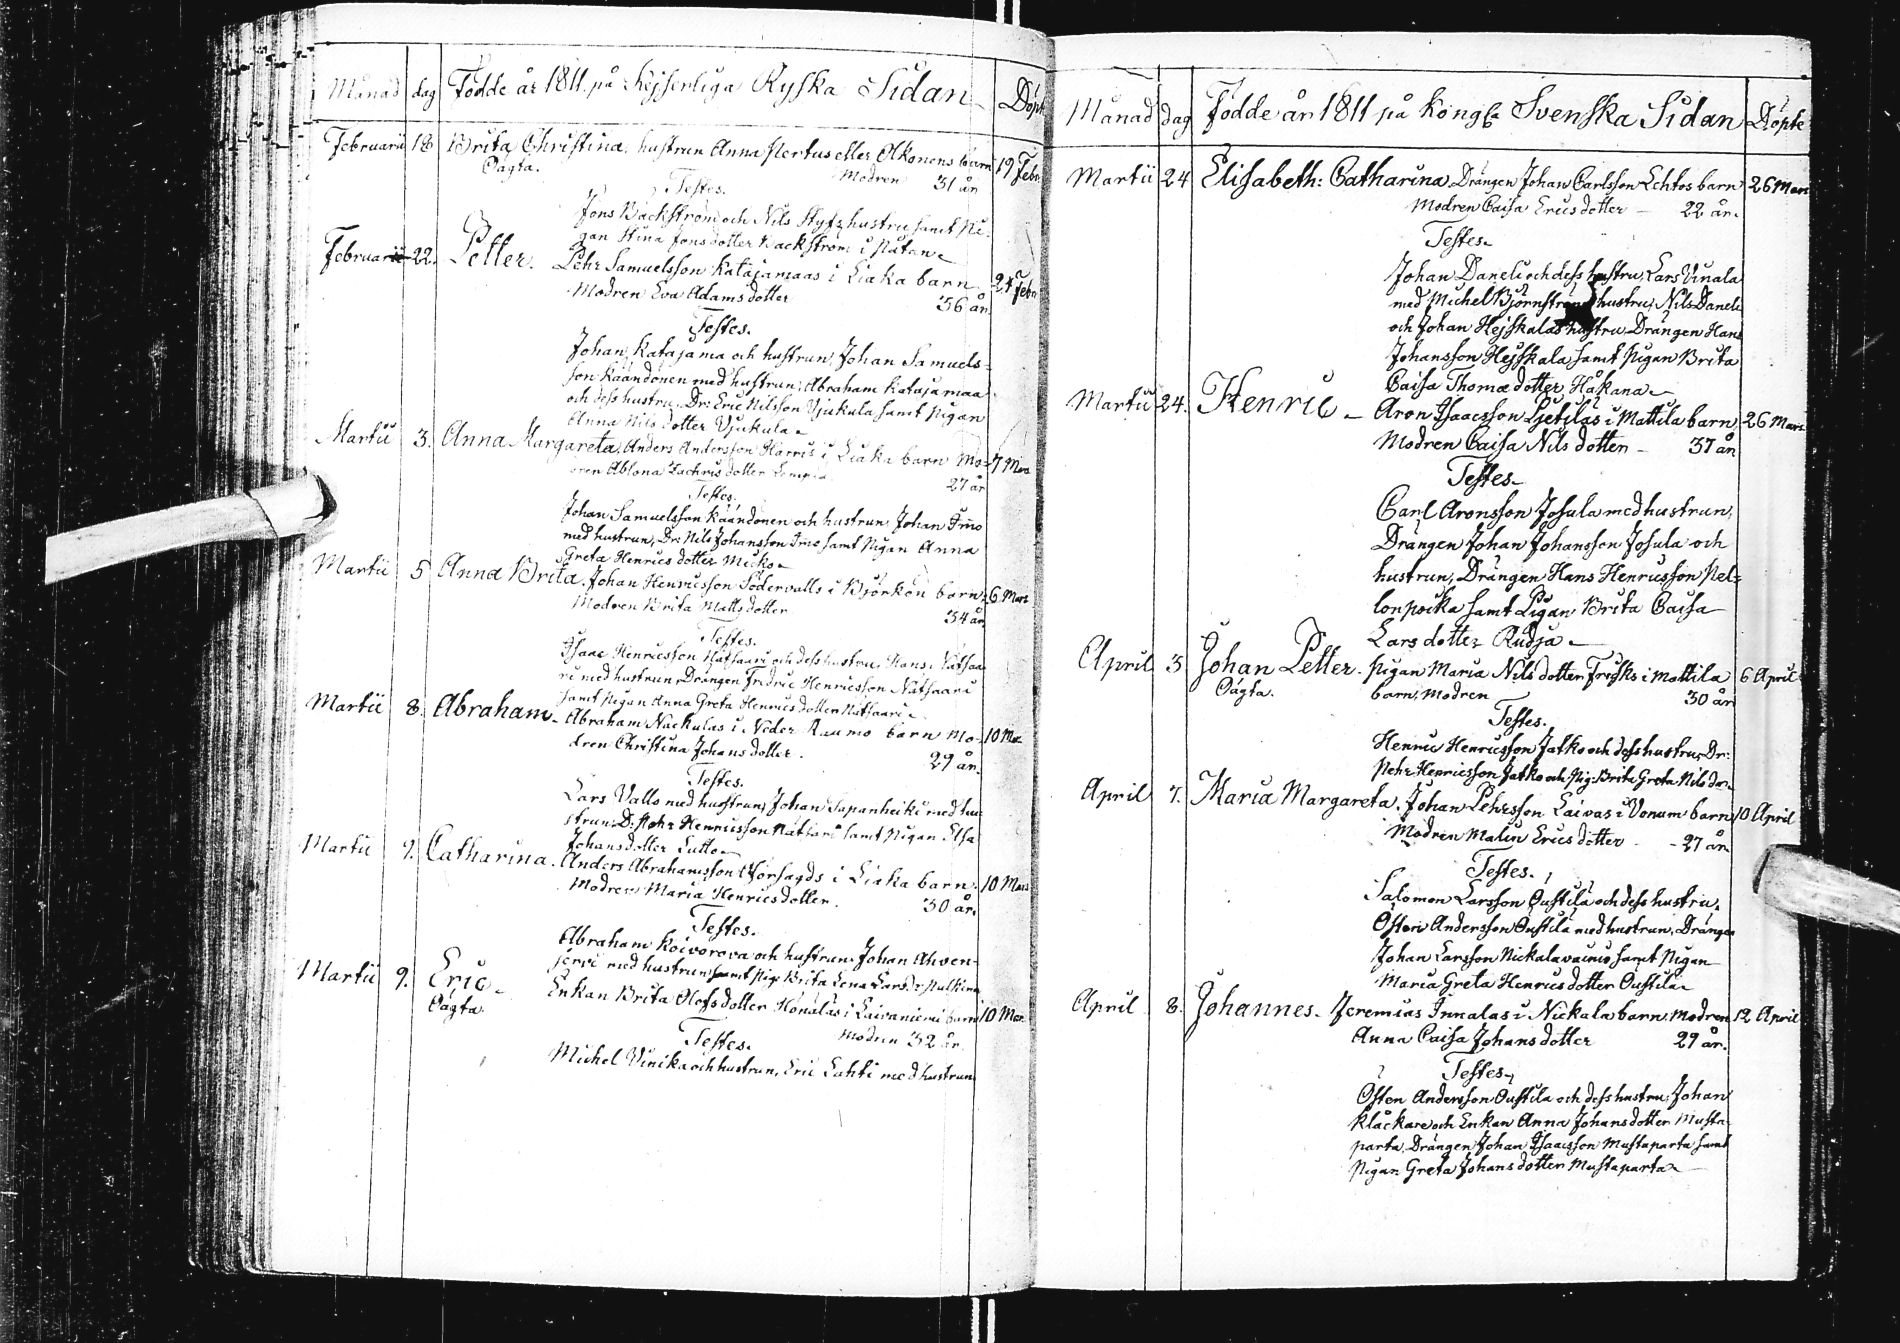 Månad dag Födde år 1811 på Kejserliga Ryska Sidan Döpt
Februarii 18 Brita Christina, hustrun Anna Pertus eller Alkonens barn 19 Febr
Oägta. Modren 31 år
Testes.
Jöns Bäckström och Nils Styfs hustru samt Pi-
gan Stina Jonsdotter Backström i Nätan
Februarii 22. Petter. Pehr Samuelsson Katajamaas i Liaka barn 24 Febr
Modren Eva Adamsdotter 36 år
Testes.
Johan Katajama och hustrun, Johan Samuels-
son Käändönen med hustrun, Abraham Katajamaa
och dess hustru, Dr: Eric Nilsson Vjukula samt Pigan
Anna Nils dotter Vjukula
Martii 3. Anna Margareta, Anders Andersson Harris i Liaka barn Mo- 7 Mars
dren Ablona Zachrisdotter 27 år
Testes.
Johan Samuelsson Käändönen och hustrun, Johan Imo
med hustrun, Dr: Nils Johansson Imo samt Pigan Anna
Greta Henricsdotter Micko
Martii 5 Anna Brita. Johan Henricsson Södervalls i Björkön barn 6 Mars
Modren Brita Mattsdotter 34 år
Testes.
Isaac Henricsson Nätsaari och dess hustru, Hans Nätsaa-
ri med hustrun, Drängen Fredric Henricsson Nätsaari
samt Pigan Anna Greta Henricsdotter Nätsaari
Martii 8. Abraham. Abraham Nackulas i Neder Raumo barn Mo- 10 Mar
dren Christina Johansdotter. 29 år.
Testes.
Lars Vallo med hustrun, Johan Sapanheiki med hu-
strun, Dr: Pehr Henricsson Nätsari samt Pigan Elsa
Johansdotter Sutto
Martii 9. Catharina. Anders Abrahamsson Försagds i Liaka barn 10 Mars
Modren Maria Henricsdotter. 30 år.
Testes.
Abraham Koivorova och hustrun, Johan Ahven-
jerve med hustrun, samt Pig: Brita Lena Larsdr Pulkinen
Martii 9. Eric Enkan Brita Olofsdotter Hönalas i Laivaniemi barn 10 Mar.
Oägta Modren 32 år.
Testes.
Michel Vinika och hustrun, Eric Lahti med hustrun
Månad dag Födde år 1811 på Kongla Svenska Sidan Döpte
Martii 24 Elisabeth: Catharina Drängen Johan Carlsson Lehtos barn 26 Mars
Modren Caisa Ericsdotter 22 år.
Testes
Johan Daneli och dess hustru, Lars Vinala
med Michel Björnströms hustru, Nils Daneli
och Johan Hejskalas hustru, Drängen Hans
Johansson Hejskala samt Pigan Brita
Caisa Thomædotter Håkana
Martii 24. Henric Aron Isaacsson Ljetiläs i Mattila barn 26 Mars
Modren Caisa Nilsdotter 37 år
Testes
Carl Aronsson Josula med hustrun,
Drängen Johan Johansson Josula och
hustrun, Drängen Hans Henricsson Pel-
lonpoika samt Pigan Brita Caisa
Lars dotter Rudja
April 3 Johan Petter. Pigan Maria Nilsdotter Frisks i Mattila 6 April
Oägta. barn, Modren 30 år
Testes.
Henric Henricsson Jatko och dess hustru, Dr:
Pehr Henricsson Jatko och Pig: Brita Greta Nilsdr
April 7. Maria Margareta. Johan Pehrsson Laivas i Vonum barn 10 April
Modren Malin Ericsdotter 27 år
Testes.
Salomon Larsson Oustila och dess hustru,
Östen Andersson Oustila med hustrun, Drängen
Johan Larsson Nickalavainio samt Pigan
Maria Greta Henricsdotter Oustila
April 8. Johannes. Jeremias Innalas i Nickala barn, Modren 12 April
Anna Caisa Johansdotter 29 år.
Testes
Östen Andersson Oustila och dess hustru, Johan
Klåckare och Enkan Anna Johansdotter Musta-
parta, Drängen Johan Isaacsson Mustaparta samt
Pigan Greta Johansdotter Mustaparta